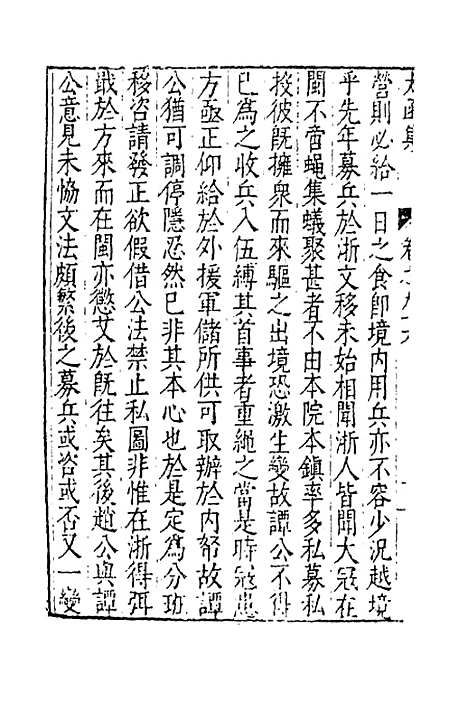 太函集 卷之九十六
營則必給一日之食即境内用兵亦不容少况越境
乎先年募兵於浙文移未始相聞浙人皆聞大冦在
閩不啻蠅集蟻聚甚者不由本院本鎮率多私募私
投彼旣擁衆而來驅之出境恐激生變故譚公不得
已爲之收兵入伍縛其首事者重繩之當是時冦患
方亟正仰給於外援軍儲所供可取辦於内帑故譚
公猶可調停隱忍然已非其本心也於是定爲分班
移咨請發正欲假借公法禁止私圖非惟在浙得弭
戢於方來而在閩亦懲艾於旣往矣其後趙公與譚
公意見未恊文法頗繁後之募兵或咨或否又一變